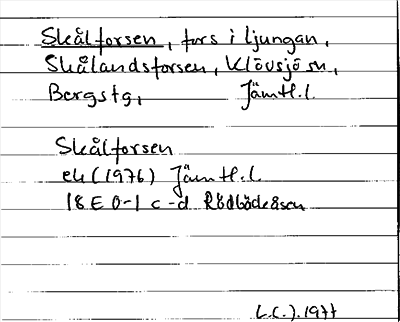 Skålforsen, fors i Ljungan,
Skålandsforsen, Klövsjö sn,
Bergs tg, Jämtl.l.
Skålforsen
ek (1976) Jämtl.l.
18E 0-1 c-d Rödbådeåsen
L.C.J. 1977